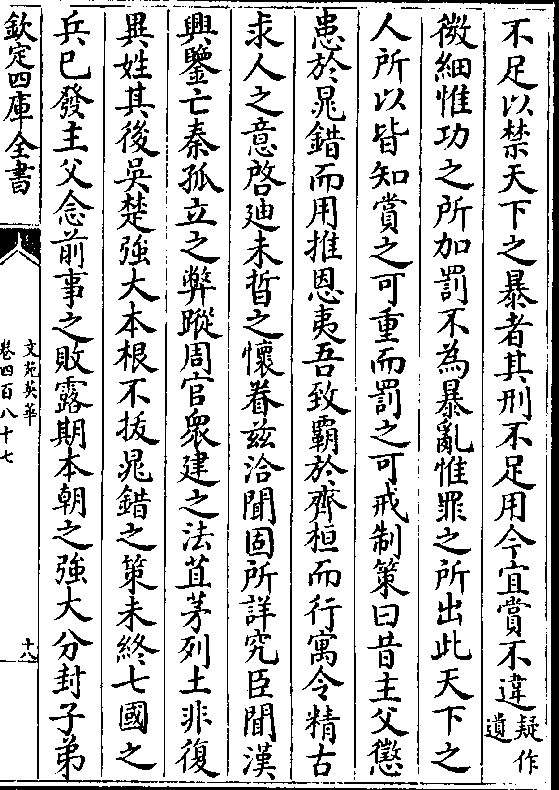 不足以禁天下之暴者其刑不足用今宜賞不違疑作遺
微細惟功之所加罰不為暴亂惟罪之所出此天下之
人所以皆知賞之可重而罰之可戒制策曰昔主父懲
患於晁錯而用推恩夷吾致霸於齊桓而行寓令精古
求人之意啓迪未晢之懷眷兹洽聞固所詳究臣聞漢
興鑒亡秦孤立之弊蹤周官衆建之法苴茅列土非復
異姓其後吳楚強大本根不拔晁錯之策未終七國之
兵已發主父念前事之敗露期本朝之強大分封子弟
欽定四庫全書
文苑英華
卷四百八十七
十八